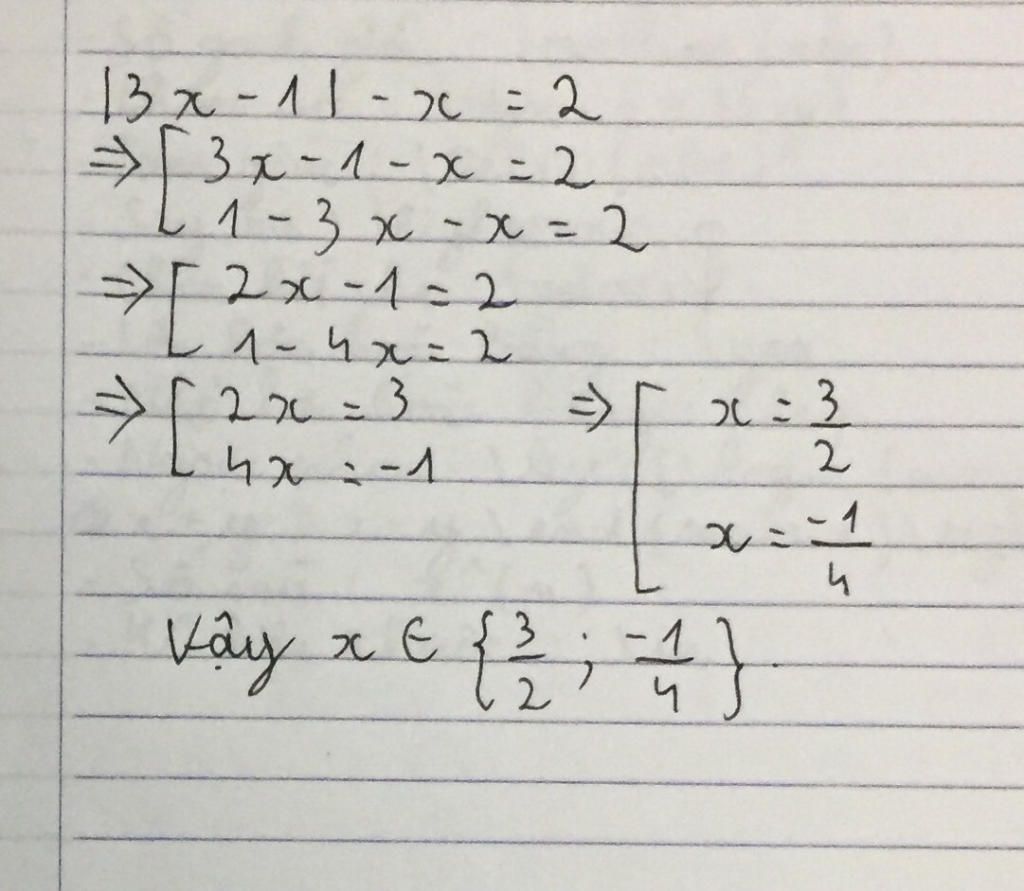 |3x - 1| - x = 2
⇒ [ 3x - 1 - x = 2
1 - 3x - x = 2
⇒ [ 2x - 1 = 2
1 - 4x = 2
⇒ [ 2x = 3
4x = -1
⇒ [ x = 3/2
x = -1/4
Vậy x ∈ {3/2 ; -1/4}.